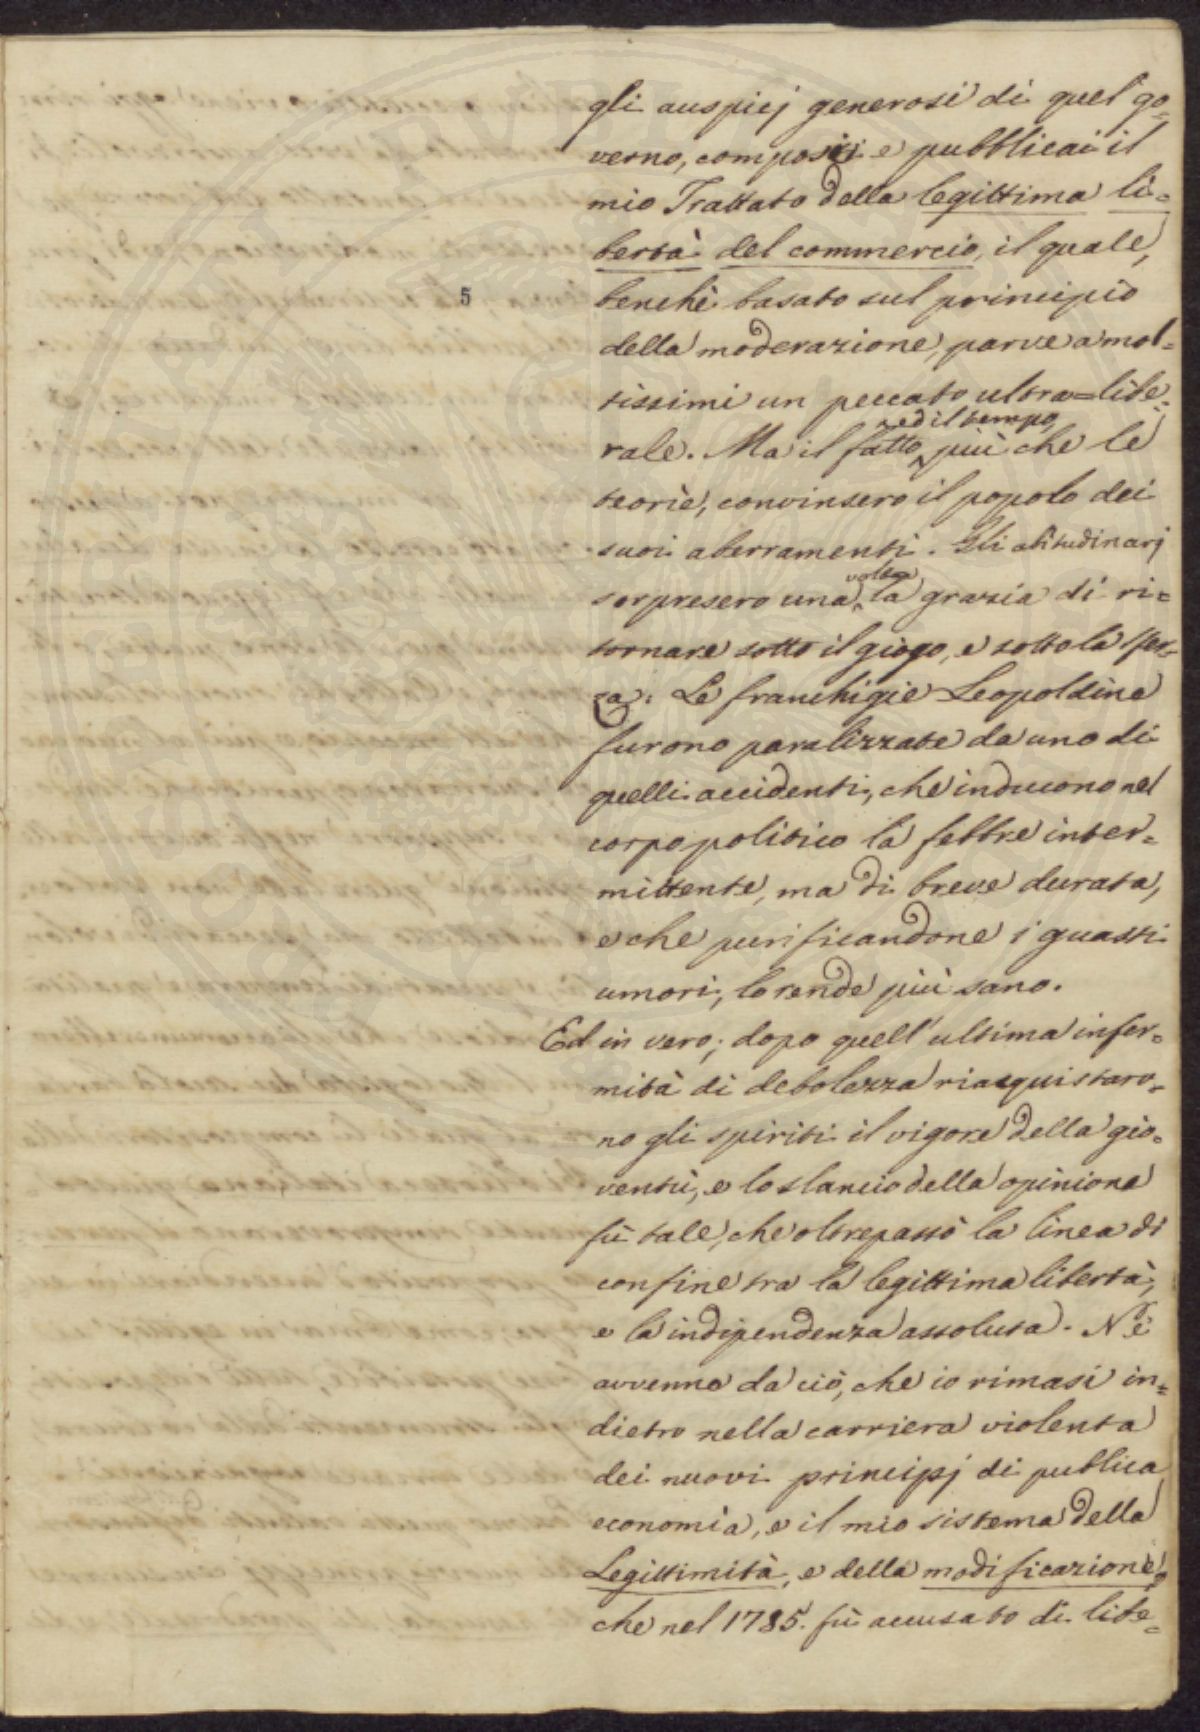 gli auspicj generosi di quel go-
verno, composi e pubblicai il
mio Trattato della legittima li-
bertà del commercio, il quale,
5
benchè basato sul principio
della moderazione, parve a mol-
tissimi un peccato ultra=libe-
rale. Ma il fatto, ed il tempo, più che le
teorie, convinsero il popolo dei
suoi aberramenti. Gli abitudinarj
sorpresero una volta la grazia di ri-
tornare sotto il giogo, e sotto la sfer-
za: Le franchigie Leopoldine
furono paralizzate da uno di
quelli accidenti, che inducono nel
corpo politico la febbre inter-
mittente, ma di breve durata,
e che purificandone i guasti
umori, lo rende più sano.
Ed in vero; dopo quell'ultima infer-
mità di debolezza riacquistaro-
no gli spiriti il vigore della gio-
ventù, e lo slancio della opinione
fù tale, che oltrepassò la linea di
confine tra la legittima libertà,
e la indipendenza assoluta. Nè
avvenne da ciò, che io rimasi in-
dietro nella carriera violenta
dei nuovi principj di publica
economia, e il mio sistema della
Legittimità, e della modificazione,
che nel 1785. fù accusato di libe-